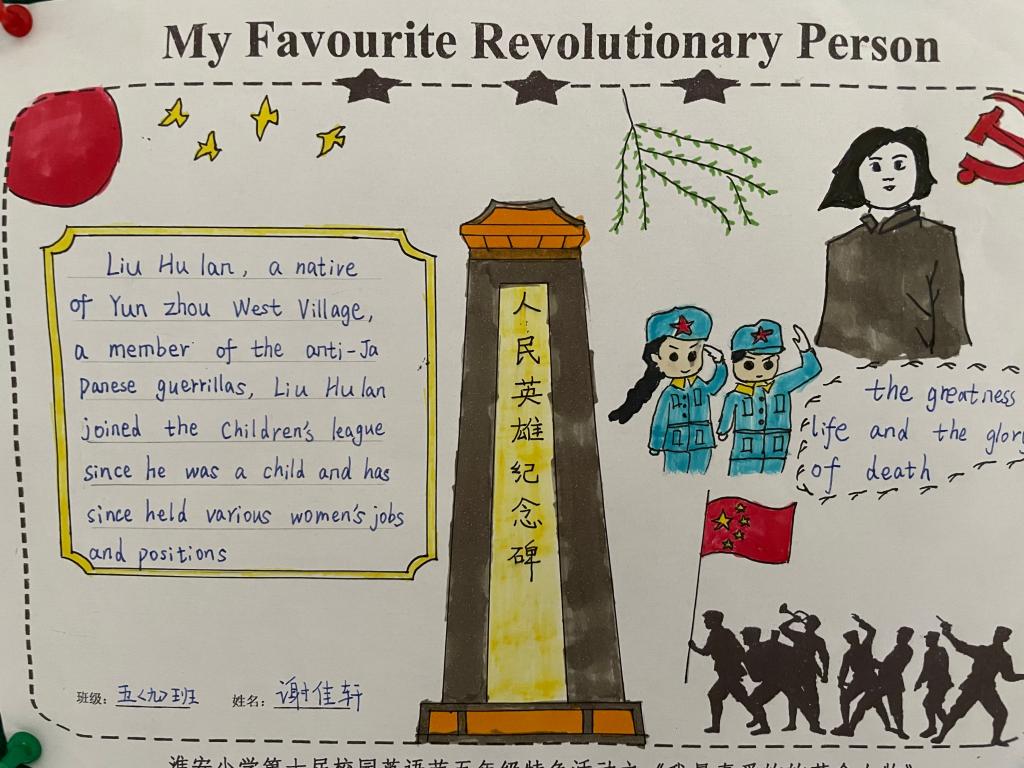 My Favourite Revolutionary Person
Liu Hu lan, a native
of Yun zhou West Village,
a member of the anti-Ja
panese guerrillas, Liu Hu lan
joined the Children's league
since he was a child and has
since held various women's jobs
and positions
人民英雄纪念碑
the greatness
life and the glory
of death
班级: 五<九>班 姓名: 谢佳轩